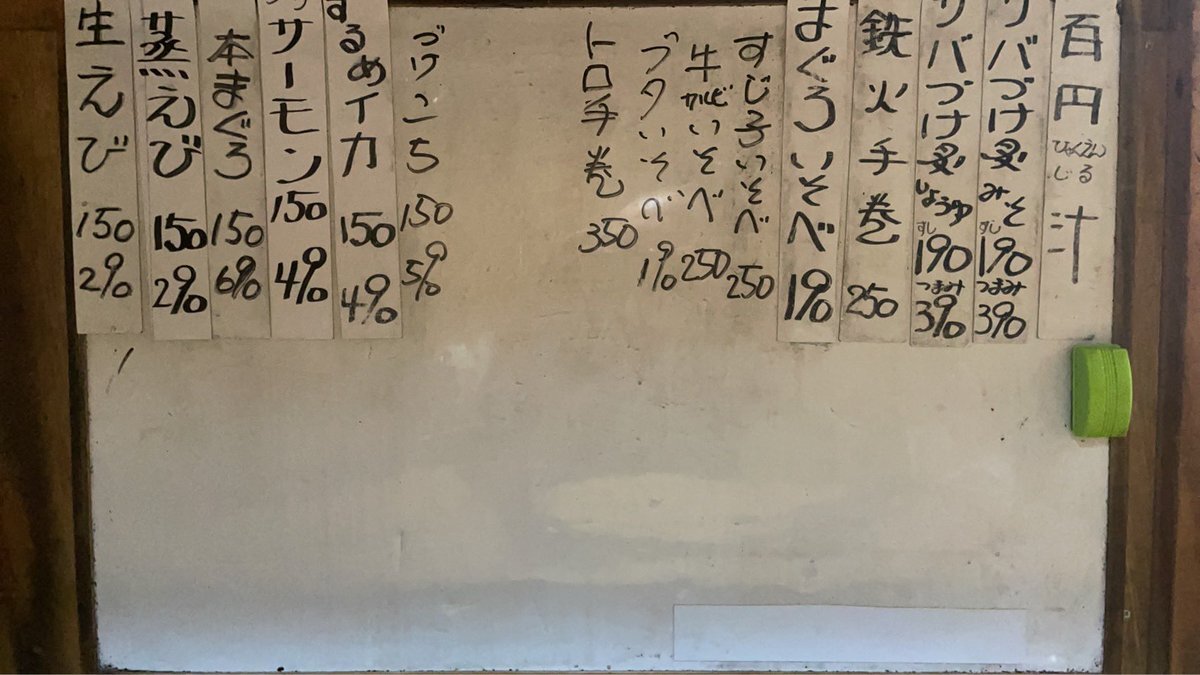 百円汁 ひゃくえんじる
サバづけ炙 みそ すし 190 つまみ 390
サバづけ炙 しょうゆ すし 190 つまみ 390
鉄火手巻 250
まぐろいそべ 190
すじ子いそべ 250
牛カルビいそべ 250
ブタいそべ 190
トロ手巻 350
づけこち 150 590
するめイカ 150 490
サーモン 150 490
本まぐろ 150 690
蒸えび 150 290
生えび 150 290